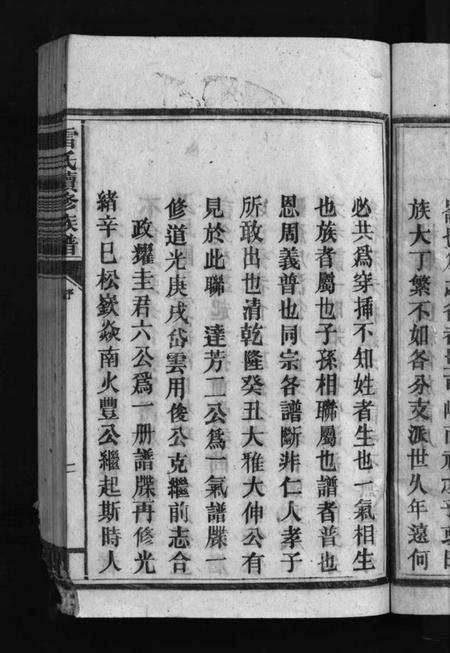 族大丁繁不如各分支派世久年遠何
必共爲穿揷不知姓者生也一氣相生
也族者屬也子孫相聯屬也譜者普也
恩周義普也同宗各譜斷非仁人孝子
所敢出也清乾隆癸丑大雅大伸公有
見於此聯 達芳二公爲一氣譜牒一
修道光庚戌岱雲用俊公克繼前志合
政耀圭君六公爲一册譜牒再修光
緒辛巳松嶔焱南火豐公繼起斯時人
雷氏續修族譜
序